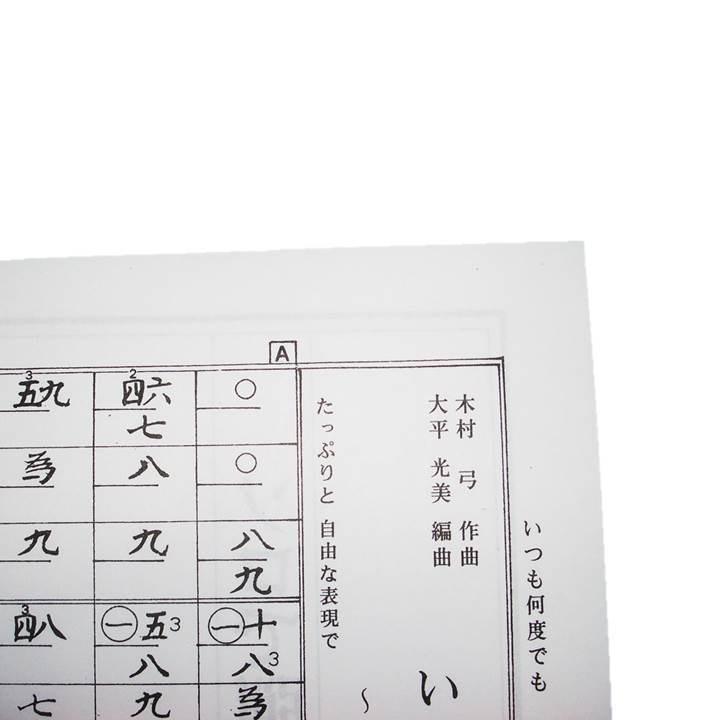 いつも何度でも
い
木村 弓 作曲
大平 光美 編曲
〜
たっぷりと 自由な表現で
A
○
○
八
九
㊀十
八3
為
2
四六
七
八
九
㊀五3
八
九
3
五九
為
九
3
四八
七